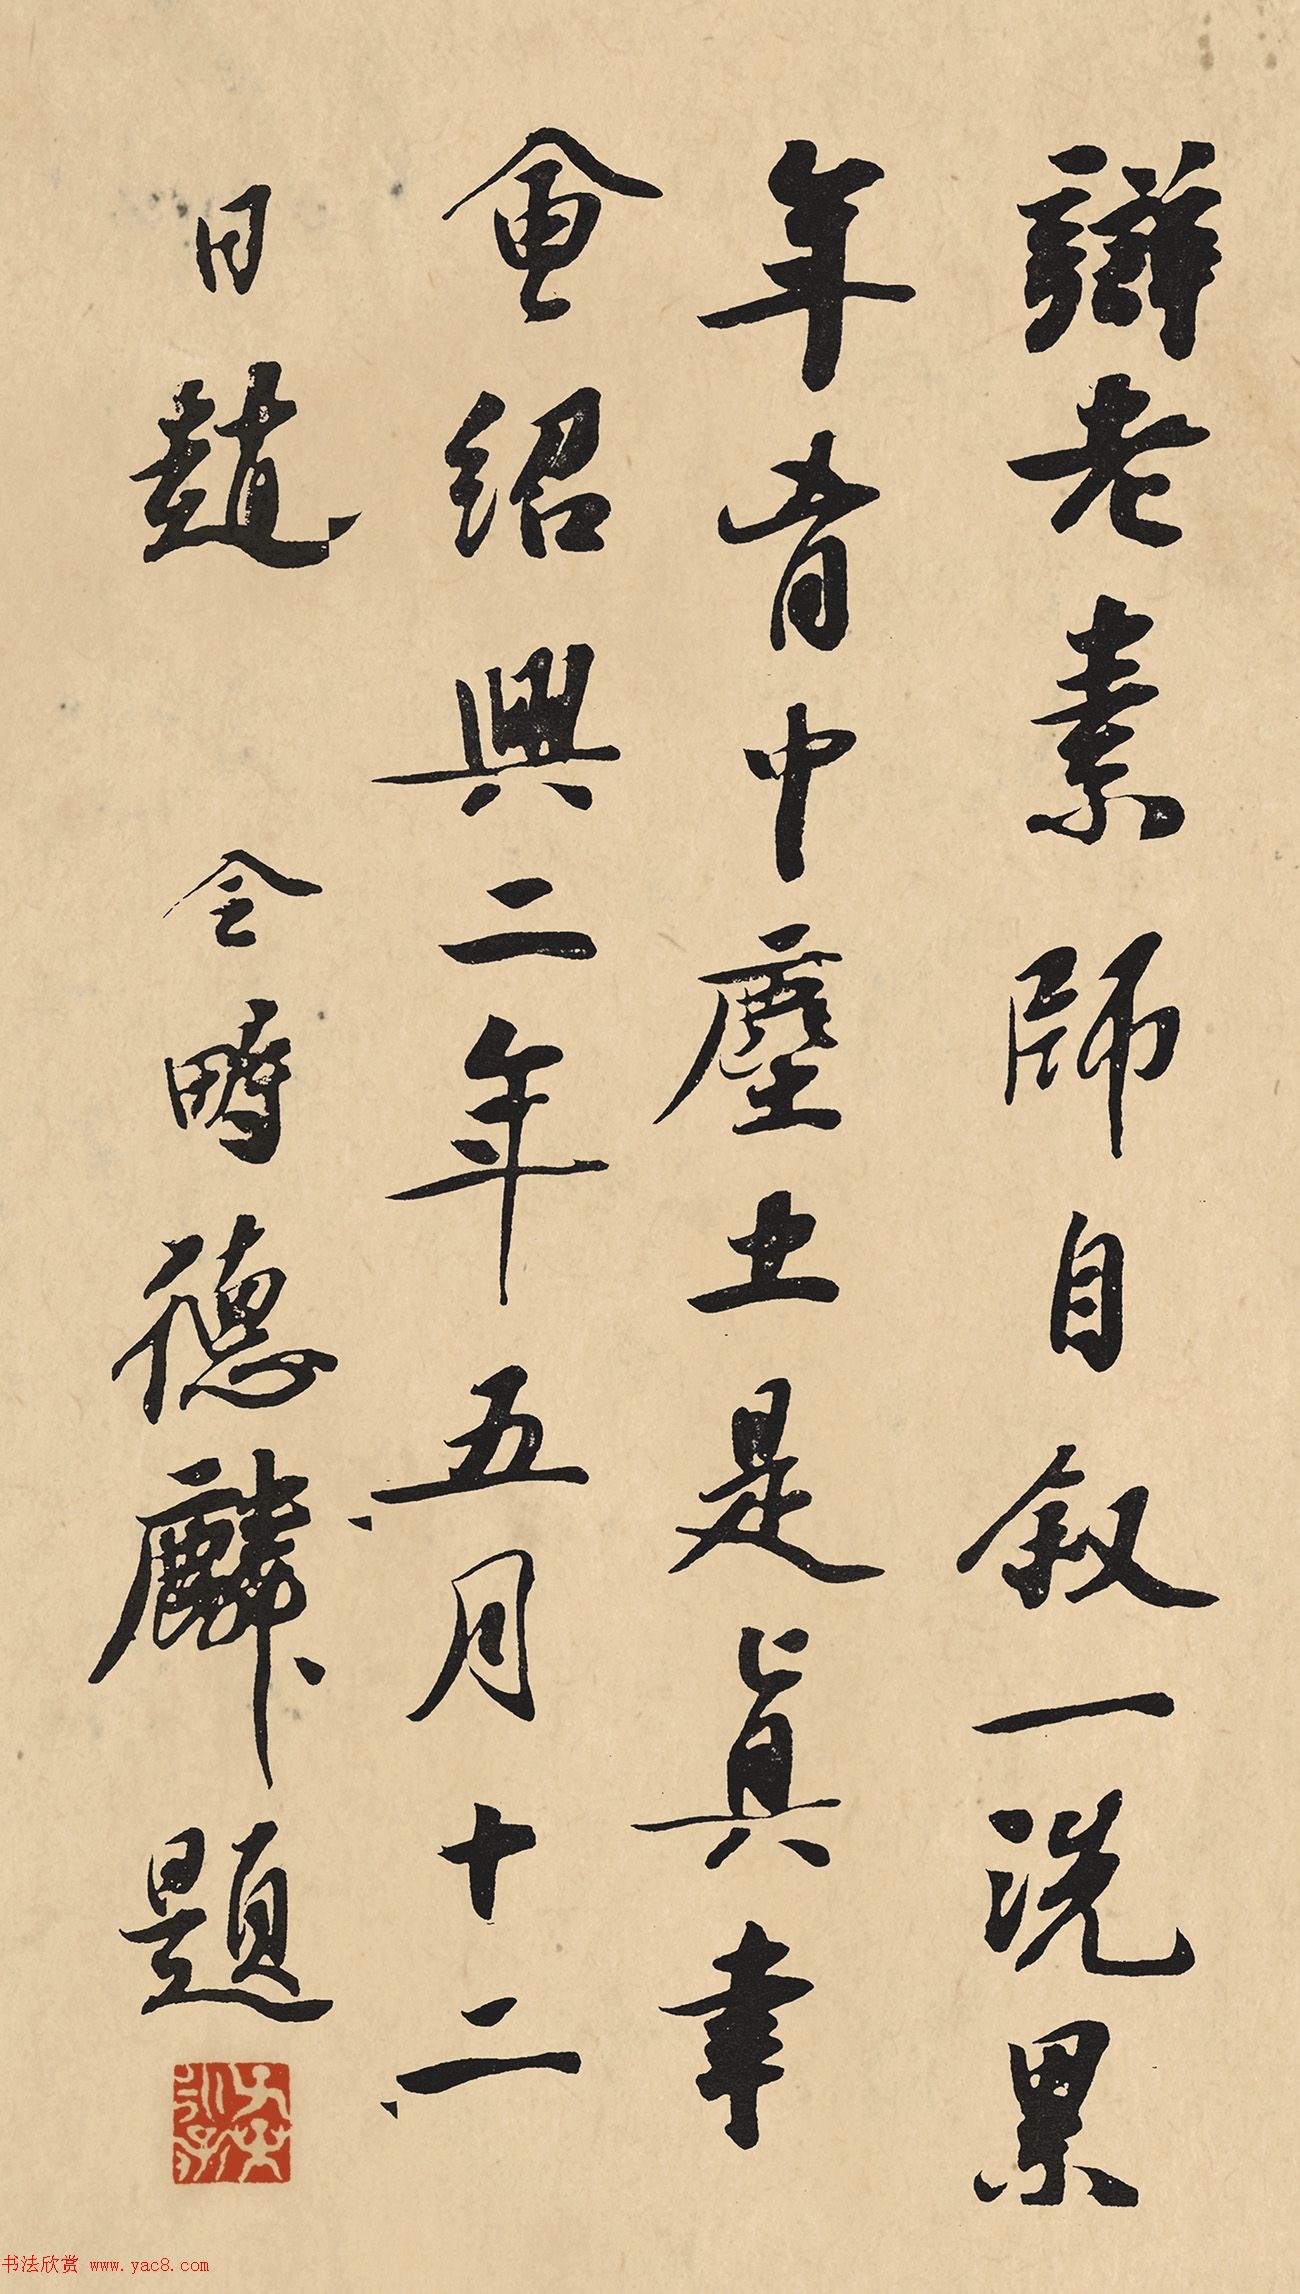 辯老素師自叙一洗累
年胷中塵土是眞幸
會紹興二年五月十二
日趙令畤德麟題
书法欣赏 www.yac8.com